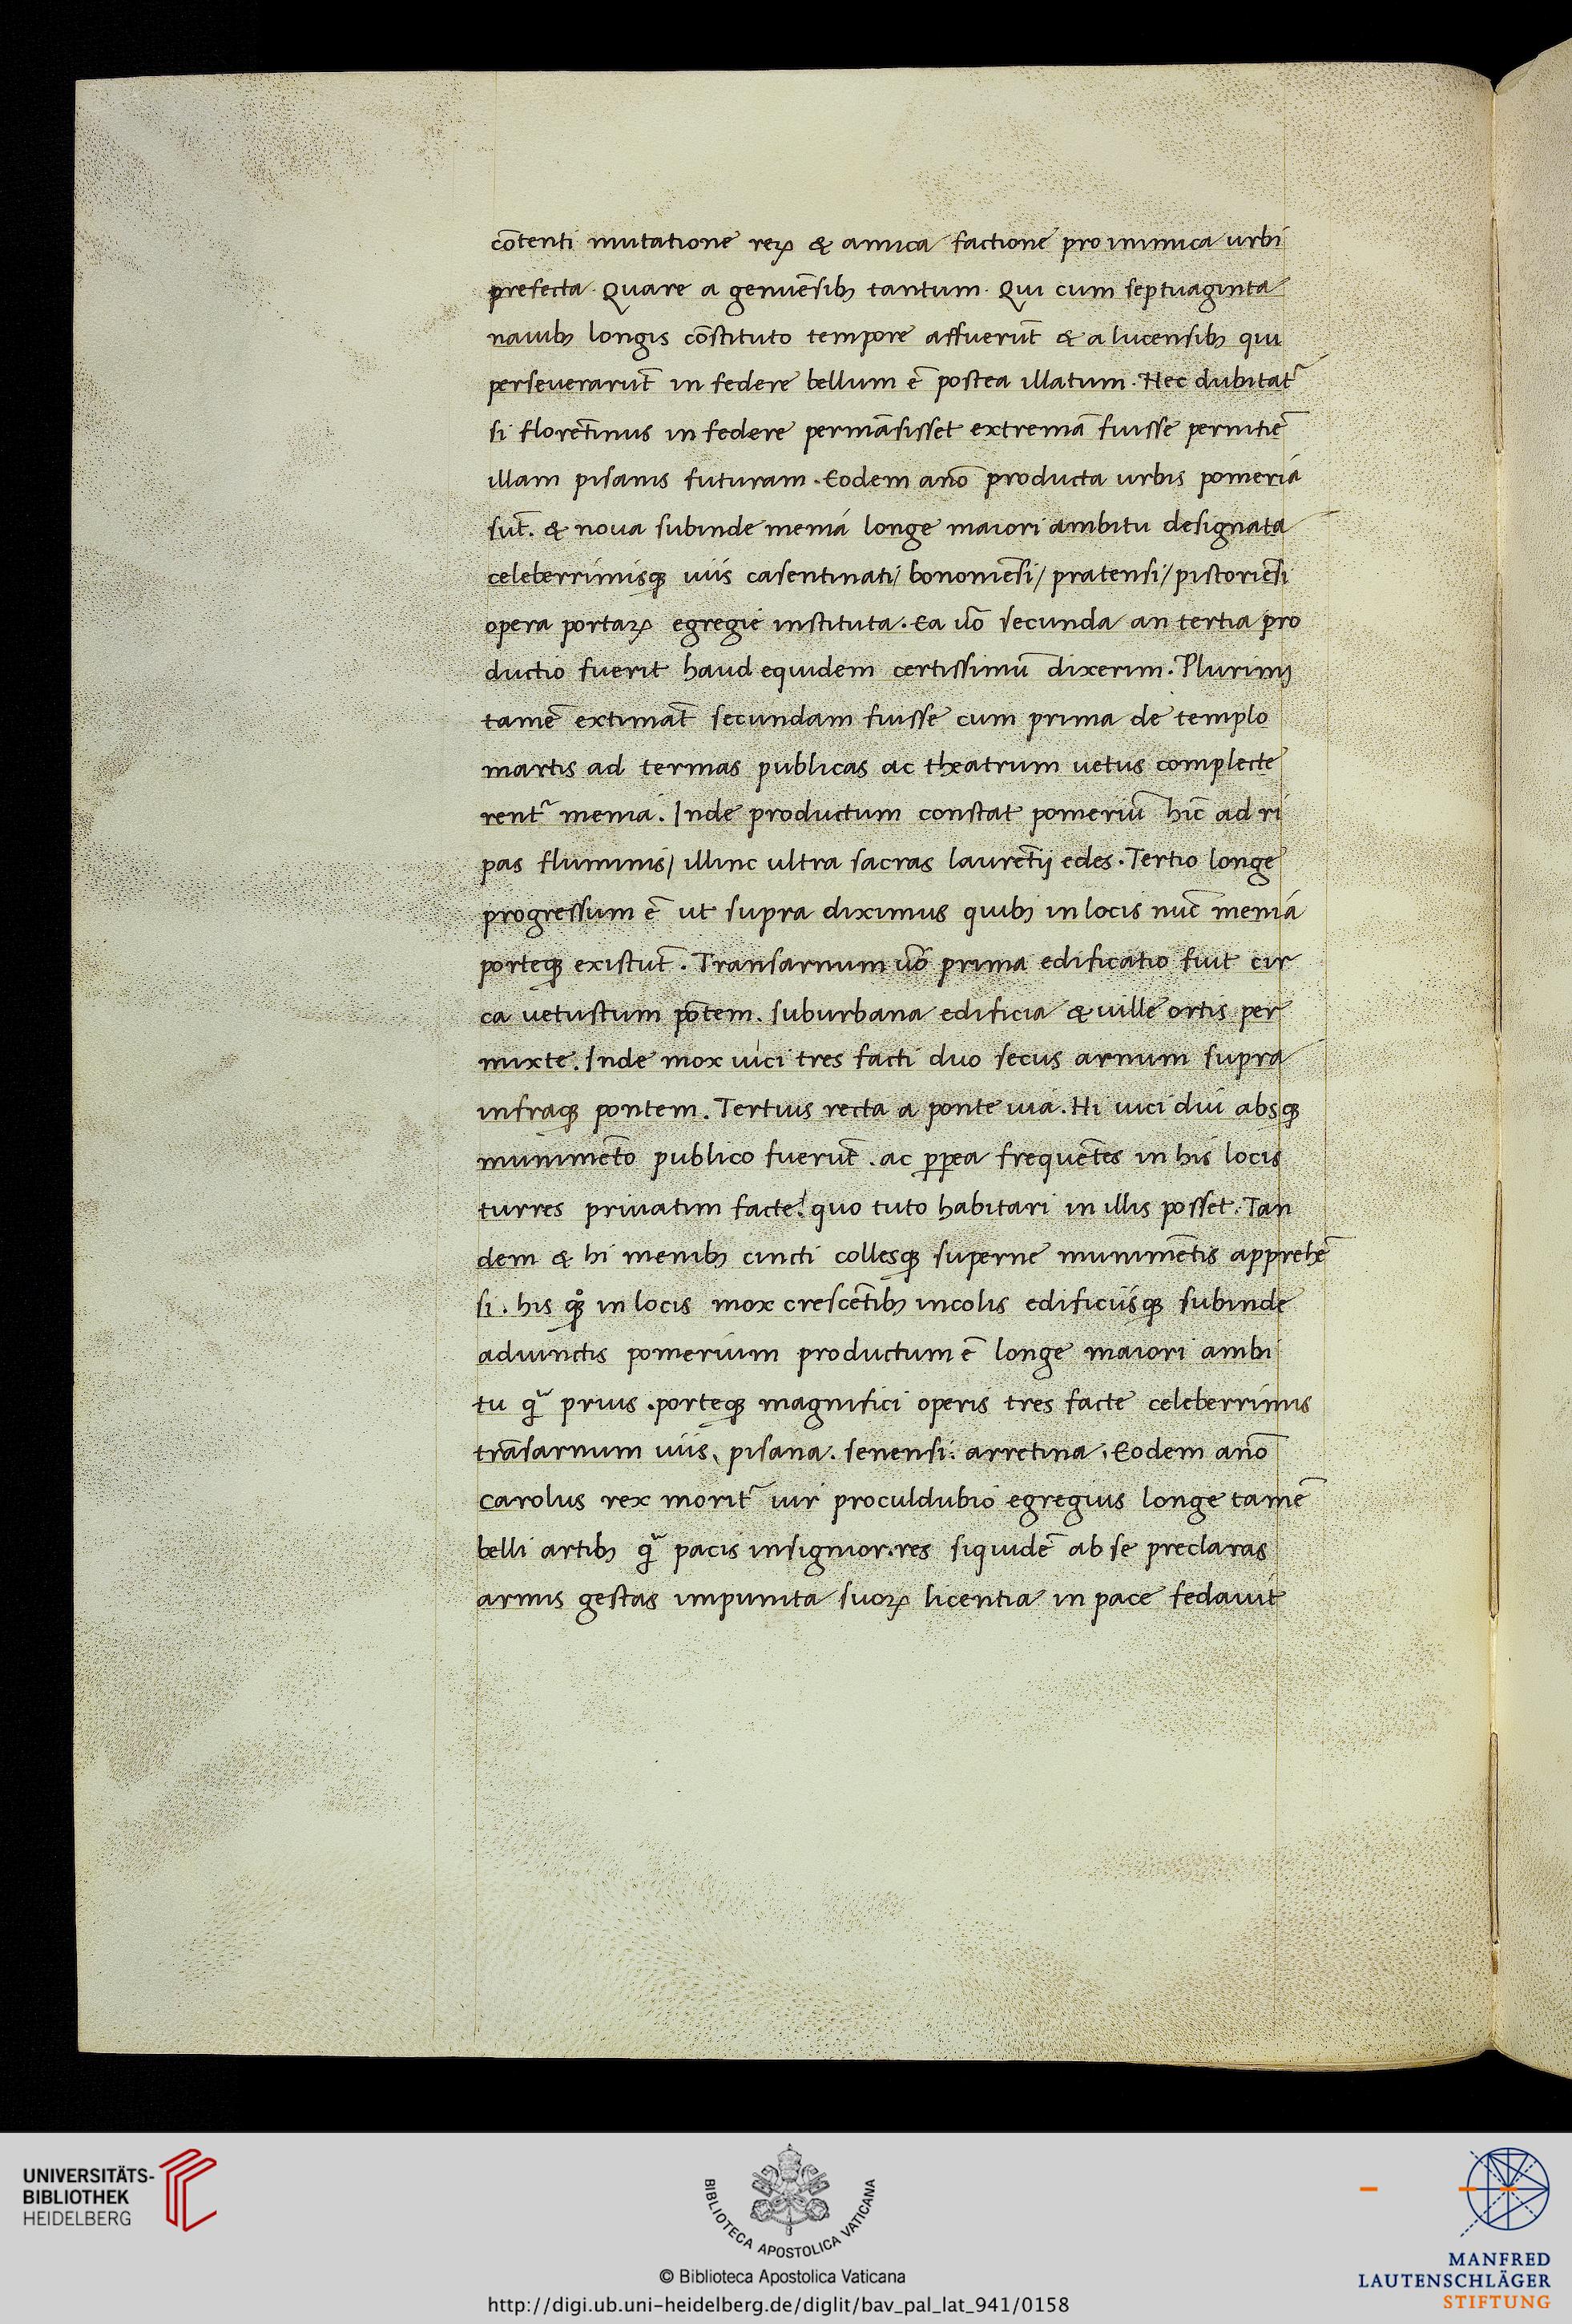 cōtenti mutatione reꝝ & amica factione pro inimica urbi
prefecta. Quare a genuēsibꝫ tantum. Qui cum septuaginta
nauibꝫ longis cōstituto tempore affuerūt & a lucensibꝫ qui
perseuerarūt in federe bellum ē postea illatum. Nec dubitat᷑
si florētinus in federe permāsisset extremā fuisse pernitiē
illam pisanis futuram. Eodem anō producta urbis pomeria
sūt. & noua subinde menia longe maiori ambitu designata
celeberrimisqꝫ uiis casentinati/ bononiēsi/ pratensi/ pistoriēsi
opera portaꝝ egregie instituta. Ea ūo secunda an tertia pro
ductio fuerit haud equidem certissimū dixerim. Plurimi
tamē extimāt secundam fuisse cum prima de templo
martis ad termas publicas ac theatrum uetus complecte
rent᷑ menia. Inde productum constat pomeriū hīc ad ri
pas fluminis/ illinc ultra sacras laurētij edes. Tertio longe
progressum ē ut supra diximus quibꝫ in locis nūc menia
porteqꝫ existūt. Transarnum ūo prima edificatio fuit cir
ca uetustum pōtem. suburbana edificia & uille ortis per
mixte. Inde mox uici tres facti duo secus arnum supra
infraqꝫ pontem. Tertius recta a ponte uia. Hi uici diu absqꝫ
munimēto publico fuerūt. ac ꝓꝑea frequētes in his locis
turres priuatim facte! quo tuto habitari in illis posset. Tan
dem & hi menibꝫ cincti collesqꝫ superne munimētis apprehē
si. his qꝫͦ in locis mox crescētibꝫ incolis edificiisqꝫ subinde
adiunctis pomerium productum ē longe maiori ambi
tu qᷓ prius. porteqꝫ magnifici operis tres facte celeberrimis
trāsarnum uiis, pisana. senensi. arretina. Eodem anō
carolus rex morit᷑ uir proculdubio egregius longe tamē
belli artibꝫ qᷓ pacis insignior. res siquidē ab se preclaras
armis gestas impunita suoꝝ licentia in pace fedauit
UNIVERSITÄTS-
BIBLIOTHEK
HEIDELBERG
BIBLIOTECA APOSTOLICA VATICANA
© Biblioteca Apostolica Vaticana
http://digi.ub.uni-heidelberg.de/diglit/bav_pal_lat_941/0158
MANFRED
LAUTENSCHLÄGER
STIFTUNG